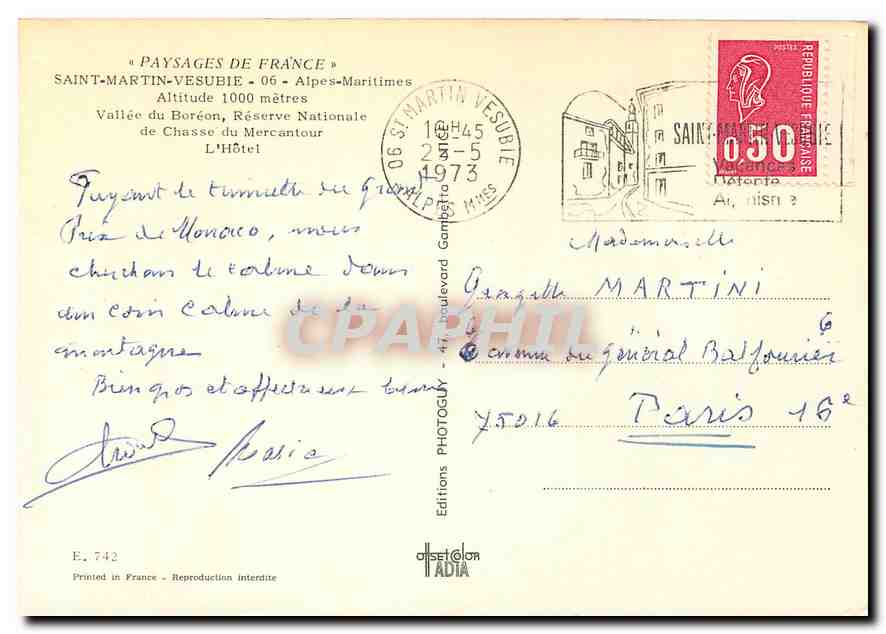 « PAYSAGES DE FRANCE »
SAINT-MARTIN-VESUBIE - 06 - Alpes-Maritimes
Altitude 1000 mètres
Vallée du Boréon, Réserve Nationale
de Chasse du Mercantour
L'Hôtel
Fuyant le tumulte du Grand
Prix de Monaco, nous
cherchons le calme dans
un coin calme de la
montagne
Bien gros et affectueux
Maria
E. 742
Printed in France - Reproduction interdite
Editions PHOTOGUY - 47, boulevard Gambetta - NICE
offsetcolor
ADIA
06 ST MARTIN VESUBIE
45
-5
1973
ALPES Mmes
SAINT-MARTIN VESUBIE
Vacances
Détente
POSTES
REPUBLIQUE FRANÇAISE
0,50
Mademoiselle
Georgette MARTINI
6 avenue du Général Balfourier
6
75016 Paris 16e
CPAPHIL